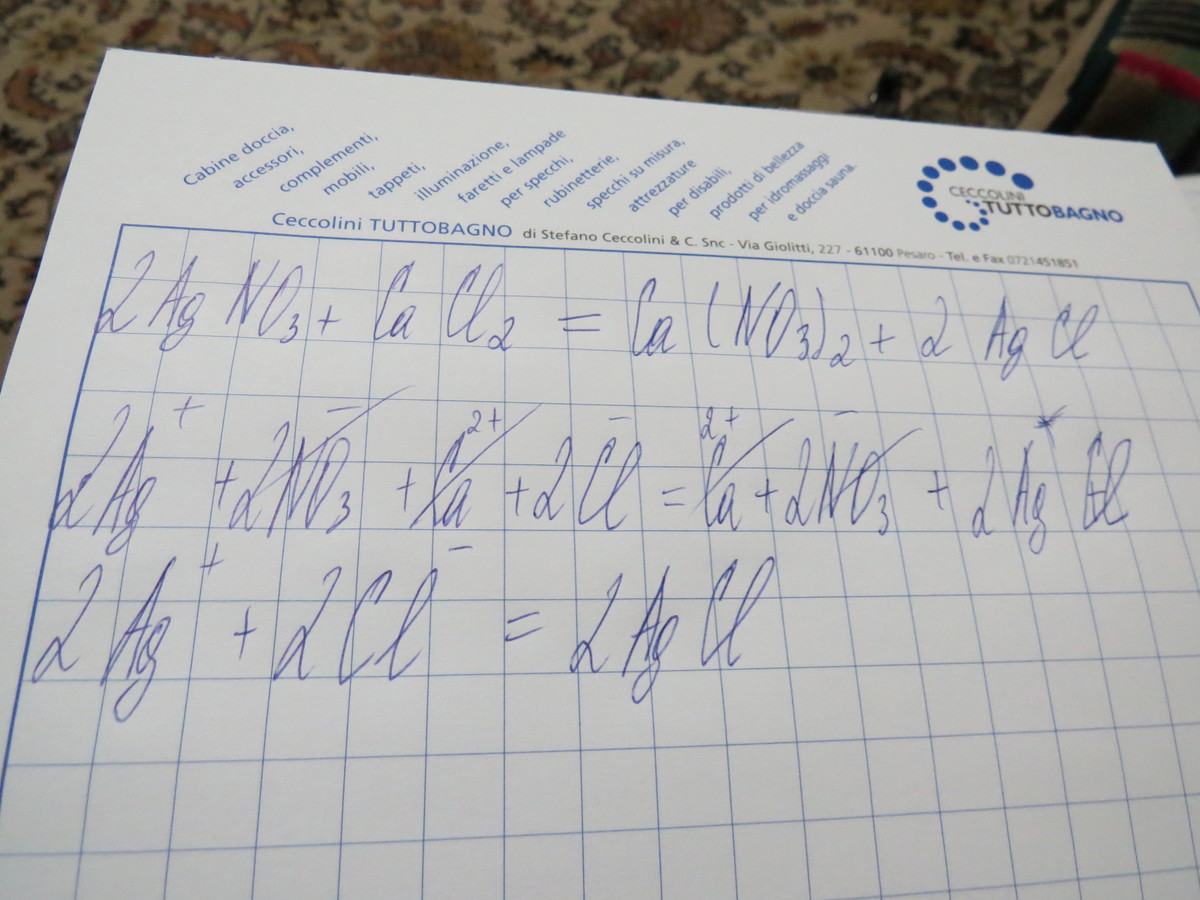 Cabine doccia,
accessori,
complementi,
mobili,
tappeti,
illuminazione,
faretti e lampade
per specchi,
rubinetterie,
specchi su misura,
attrezzature
per disabili,
prodotti di bellezza
per idromassaggi
e doccia sauna.
CECCOLINI
TUTTOBAGNO
Ceccolini TUTTOBAGNO di Stefano Ceccolini & C. Snc - Via Giolitti, 227 - 61100 Pesaro - Tel. e Fax 0721451851
2 Ag NO₃ + Ca Cl₂ = Ca (NO₃)₂ + 2 Ag Cl
2Ag⁺ + 2NO₃⁻ + Ca²⁺ + 2Cl⁻ = Ca²⁺ + 2NO₃⁻ + 2Ag Cl
2Ag⁺ + 2Cl⁻ = 2Ag Cl